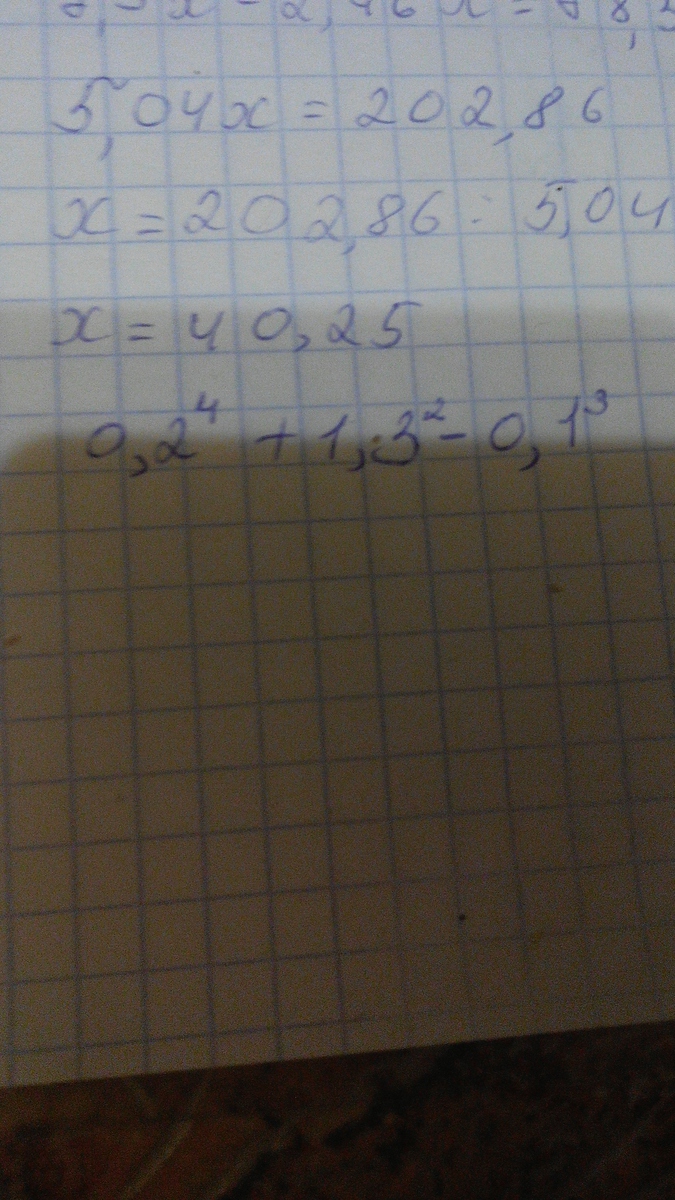 5,04x = 202,86
x = 202,86 : 5,04
x = 40,25
0,2⁴ + 1,3² - 0,1³